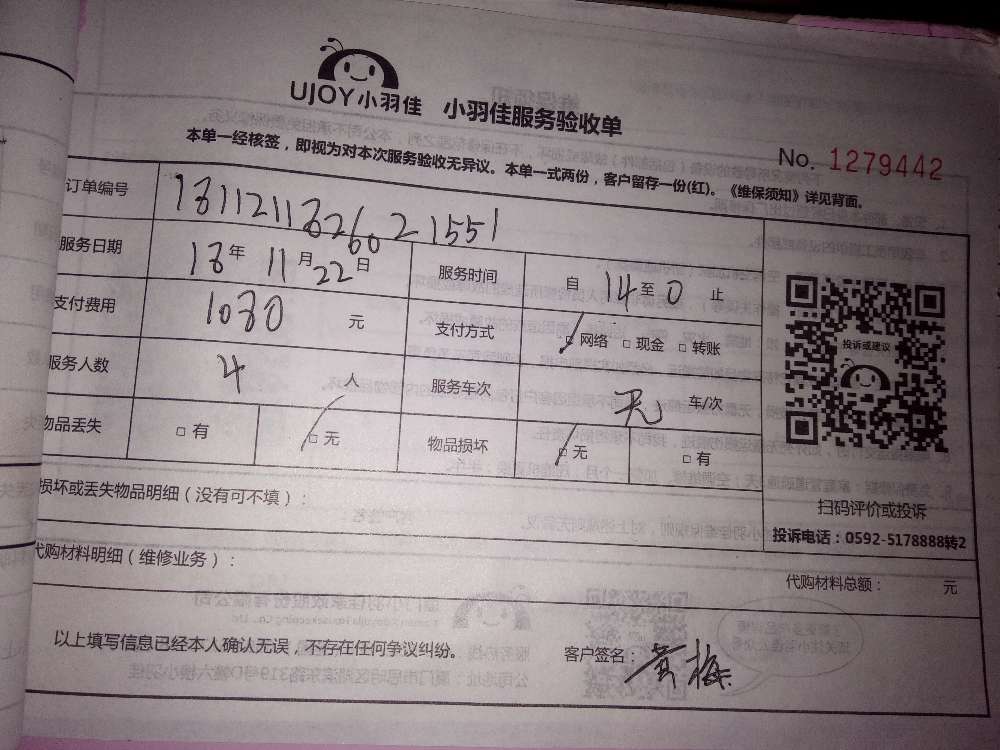 UJOY小羽佳 小羽佳服务验收单
No. 1279442
本单一经核签，即视为对本次服务验收无异议。本单一式两份，客户留存一份(红)。《维保须知》详见背面。
订单编号
服务日期 18年 11月 22日 服务时间 自 14至0 止
支付费用 1080 元 支付方式 □网络 □现金 □转账
服务人数 4 人 服务车次 无 车/次
物品丢失 □有 □无 物品损坏 □无 □有
投诉或建议
扫码评价或投诉
投诉电话：0592-5178888转2
损坏或丢失物品明细（没有可不填）：
代购材料明细（维修业务）：
代购材料总额： 元
以上填写信息已经本人确认无误，不存在任何争议纠纷。 客户签名：黄梅